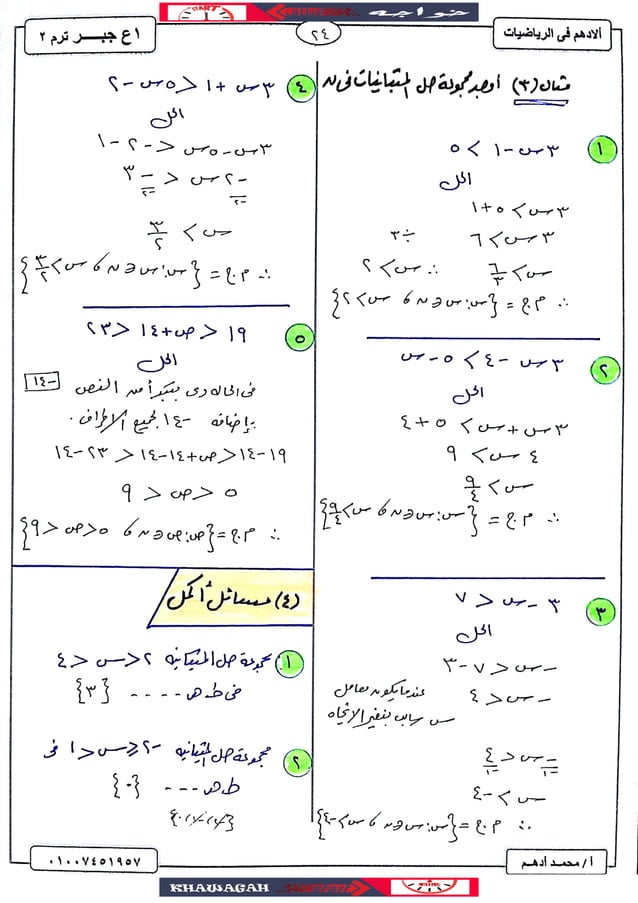 START خواجه
ألادهم فى الرياضيات
٢٤
١ع جبر ترم ٢
مثال (٣) أوجد مجموعة حل المتباينات فى ن
١
٣س - ١ < ٥
الحل
٣س < ٥ + ١
٣س < ٦ ÷ ٣
س < ٦/٣ ∴ س < ٢
∴ م.ح = {س: س ∈ ن ، س < ٢}
٢
٣س - ٤ < ٥ - س
الحل
٣س + س < ٥ + ٤
٤س < ٩
س < ٩/٤
∴ م.ح = {س: س ∈ ن ، س < ٩/٤}
٣
٣ - س > ٧
الحل
- س > ٧ - ٣
- س > ٤
عندما يكون معامل
س سالب بنغير الاتجاه
-س/-١ > ٤/-١
س < -٤
∴ م.ح = {س: س ∈ ن ، س < -٤}
٤
٣س + ١ > ٥س - ٢
الحل
٣س - ٥س > -٢ - ١
-٢س/-٢ > -٣/-٢
س < ٣/٢
∴ م.ح = {س: س ∈ ن ، س < ٣/٢}
٥
١٩ > ص + ١٤ > ٢٣
الحل
فى الحاله دى بنبدأ من النص -١٤
بإضافه -١٤ لجميع الاطراف.
١٩ - ١٤ > ص + ١٤ - ١٤ > ٢٣ - ١٤
٥ > ص > ٩
∴ م.ح = {ص: ص ∈ ن ، ٥ > ص > ٩}
(٤) مسائل أكمل
١ مجموعة حل المتباينه ٢ > س > ٤
فى ط هى .... {٣}
٢ مجموعة حل المتباينه -٢ ≥ س > ١ فى
ط هى ... {٠}
أ/ محمد أدهم
٠١٠٠٧٤٥١٩٥٧
KHAWAGAH